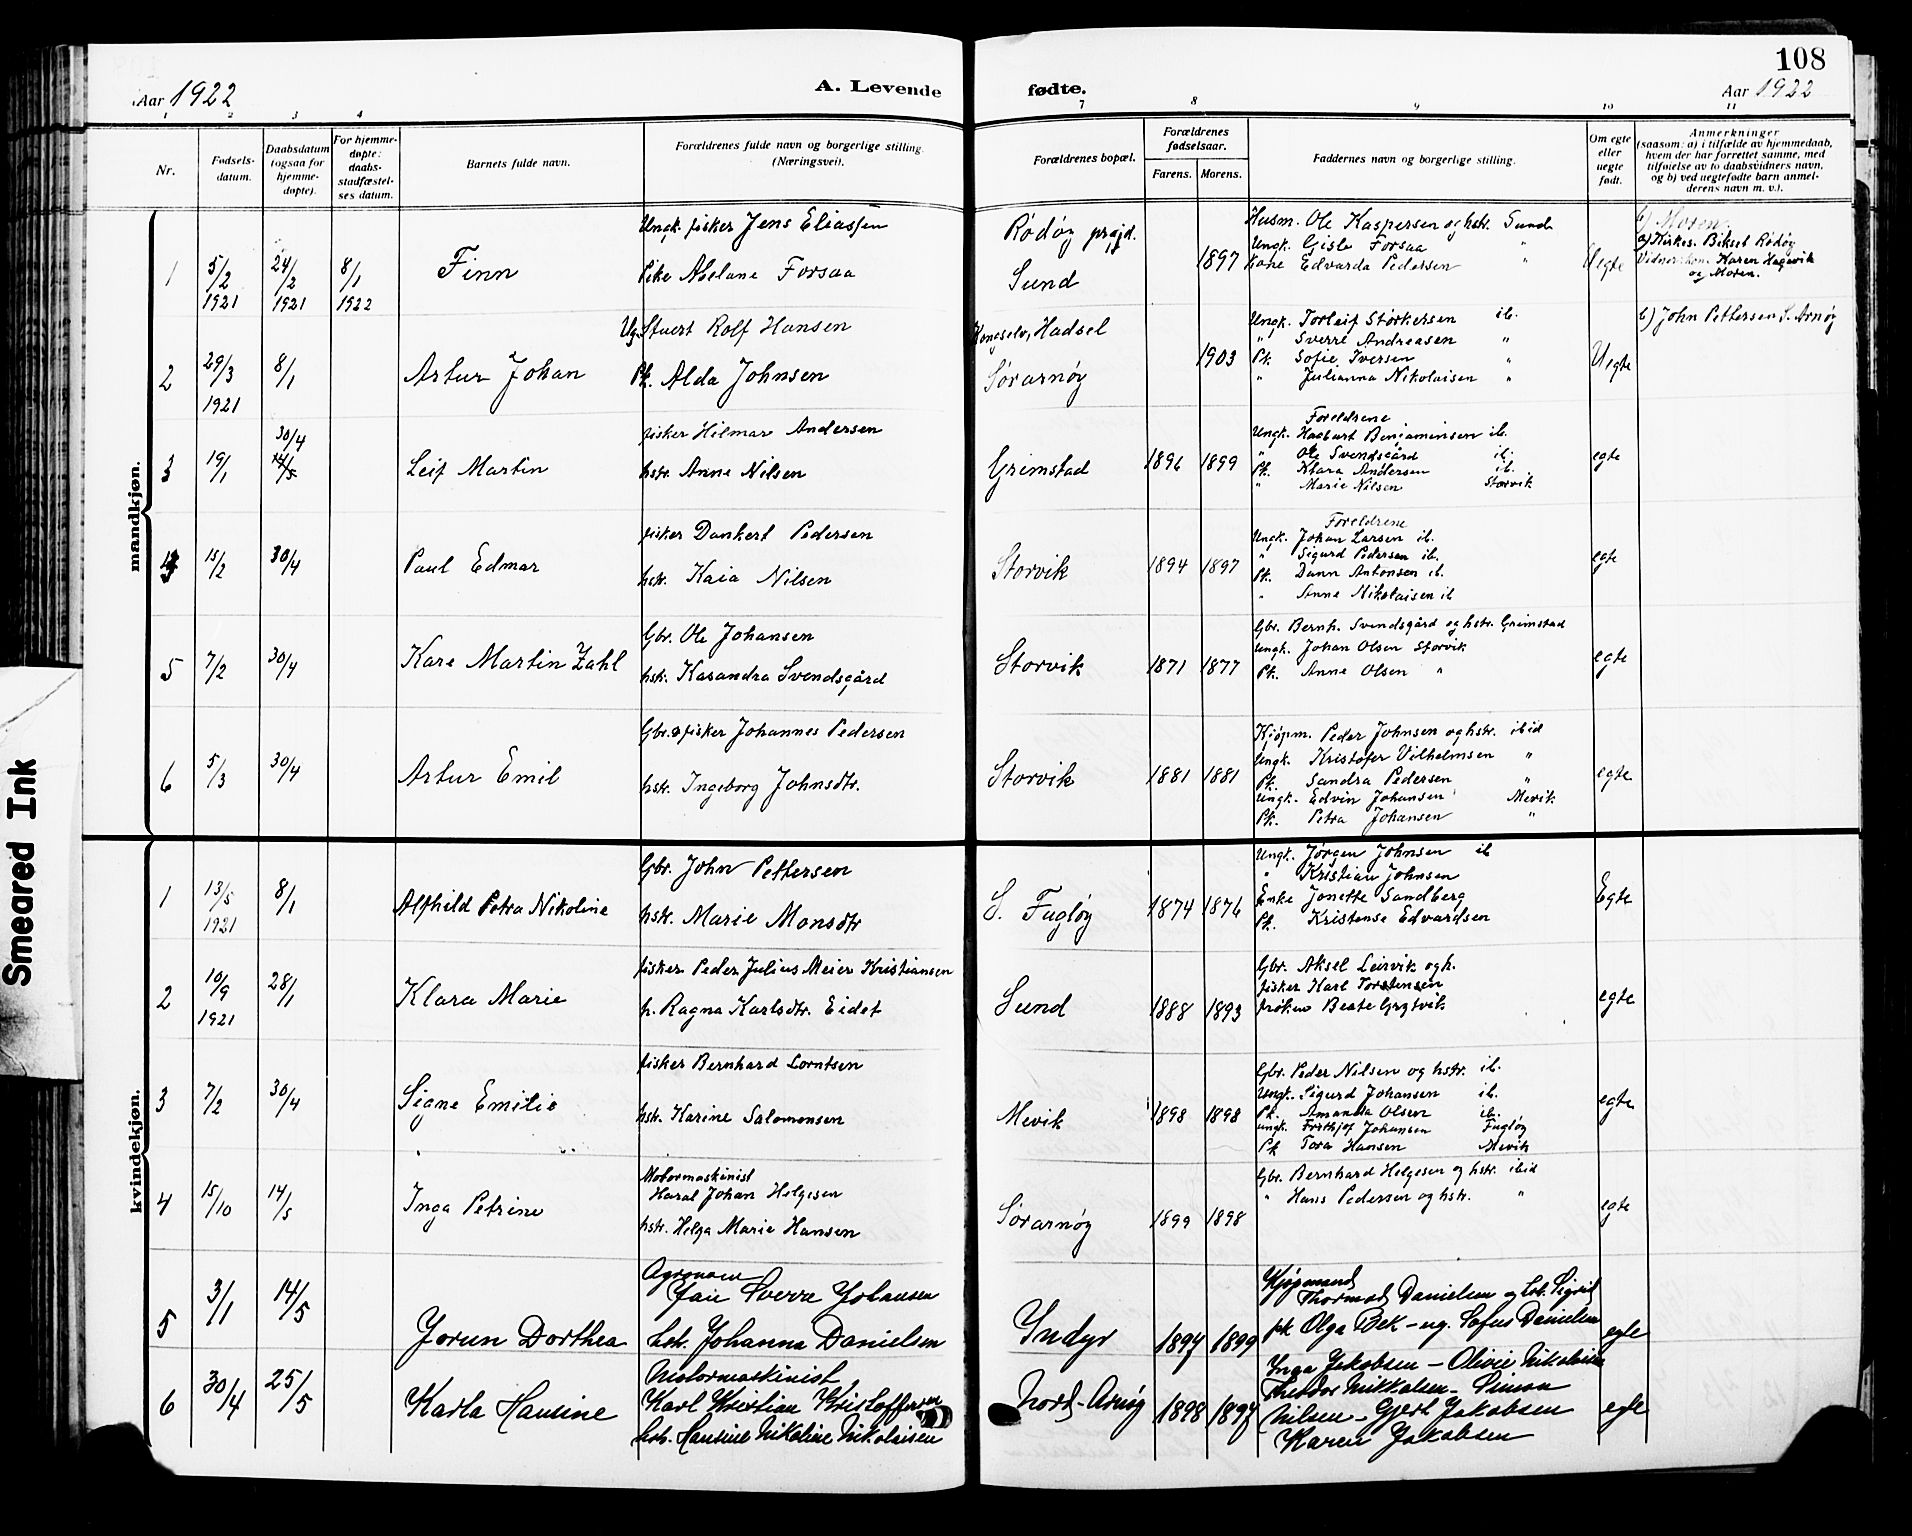 108
Aar 1922
A. Levende
fødte.
Aar 1922
1 2 3 4 7 8 9 10 11
Nr.
Fødsels-
datum.
Daabsdatum
(ogsaa for
hjemme-
døpte).
For hjemme-
døpte:
daabs-
stadfæstel-
ses datum.
Barnets fulde navn.
Forældrenes fulde navn og borgerlige stilling.
(Næringsvei).
Forældrenes bopæl.
Forældrenes
fødselsaar.
Farens. Morens.
Faddernes navn og borgerlige stilling.
Om egte
eller
uegte
født.
Anmerkninger
(saasom: a) i tilfælde av hjemmedaab,
hvem der har forrettet samme, med
tilføielse av to daabsvidners navn,
og b) ved uegtefødte barn anmel-
derens navn m. v.).
mandkjøn.
1 5/2 1921 24/2 1921 8/1 1922 Finn
Ungk. fisker Jens Eliassen
Pike Abelone Forsaa
Rødøy prgjd.
Sund
1897
Husm. Ole Kaspersen og hstr. Sund
Ungk. Gisle Forsaa "
Kone Edvarda Pedersen "
Uegte
b) Moren.
a) Kirkes. Biksel Rødøy
Vidner: Karen Hagevik
og Moren.
2 29/3 1921 8/1 Artur Johan
Ug. Stuert Rolf Hansen
Pk. Alda Johnsen
Kongselv, Hadsel
Sørarnøy
1903
Ungk. Torleif Storkersen ib.
" Sverre Andreasen "
Pk. Sofie Iversen "
" Julianna Nikolaisen "
Uegte
b) John Pettersen S. Arnøy
3 19/1 30/4 14/5 Leif Martin
fisker Hilmar Andersen
hstr. Anne Nilsen
Grimstad 1896 1899
Foreldrene
Ungk. Hagbart Benjaminsen ib.
" Ole Svendsgård ib.
Pk. Klara Andersen ib.
" Marie Nilsen Storvik
egte
4 15/2 30/4 Paul Edmar
fisker Dankert Pedersen
hstr. Kaia Nilsen
Storvik 1894 1897
Foreldrene
Ungk. Johan Larsen ib.
" Sigurd Pedersen ib.
Pk. Dann Antonsen ib.
" Anna Nikolaisen ib
egte
5 7/2 30/4 Kare Martin Zahl
Gbr. Ole Johansen
hstr. Kasandra Svendsgård
Storvik 1871 1877
Gbr. Bernh. Svendsgård og hstr. Grimstad
Ungk. Johan Olsen Storvik
Pk. Anne Olsen "
egte
6 5/3 30/4 Artur Emil
Gbr. o fisker Johannes Pedersen
hstr. Ingeborg Johnsdtr.
Storvik 1881 1881
Kjøpm. Peder Johnsen og hstr. ibid
Ungk. Kristofer Vilhelmsen "
Pk. Sandra Pedersen "
Ungk. Edvin Johansen Mevik
Pk. Petra Johansen "
egte
kvindekjøn.
1 13/5 1921 8/1 Alfhild Petra Nikoline
Gbr. John Pettersen
hstr. Marie Monsdtr
S. Fugløy 1874 1876
Ungk. Jørgen Johnsen ib
" Kristian Johnsen
Enke Jonette Sandberg
Pk. Kristense Edvardsen
Egte
2 10/9 1921 28/1 Klara Marie
fisker Peder Julius Meier Kristiansen
h. Ragna Karlsdtr. Eidet
Sund 1888 1893
Gbr. Aksel Leirvik og h.
fisker Karl Torstensen
frøken Beate Grytvik
egte
3 7/2 30/4 Signe Emilie
fisker Bernhard Lorntsen
hstr. Karine Salomonsen
Mevik 1898 1898
Gbr. Peder Nilsen og hstr. ib.
Ungk. Sigurd Johansen ib.
Pk. Amanda Olsen ib.
Ungk. Fridtjof Johansen Fugløy
Pk Tora Hansen Mevik
egte
4 15/10 14/5 Inga Petrine
Motormaskinist
Haral Johan Helgesen
hstr. Helga Marie Hansen
Sørarnøy 1899 1898
Gbr. Bernhard Helgesen og hstr. ibid
" Hans Pedersen og hstr. "
egte
5 3/1 14/5 Jorun Dorthea
Agronom
Jan Sverre Johansen
hst. Johanna Danielsen
Indyr 1897 1899
Kjøpmand
Thormod Danielsen og hst. Sigrid
pk Olga Bek - ug. Sofus Danielsen
egte
6 30/4 25/5 Karla Hansine
Motormaskinist
Karl Kristian Kristoffersen
hst. Hansine Nikoline Nikolaisen
Nord-Arnøy 1898 1897
Inga Jakobsen - Olivie Nikolaisen
Theodor Mikkelsen - Simon
Nilsen - Gjert Jakobsen
Karen Jakobsen
egte
Smeared Ink